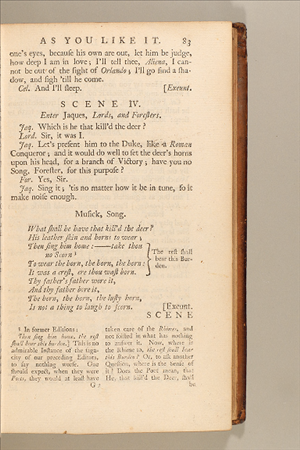 AS YOU LIKE IT. 83
one's eyes, because his own are out, let him be judge,
how deep I am in love; I'll tell thee, Aliena, I can-
not be out of the sight of Orlando; I'll go find a sha-
dow, and sigh 'till he come.
Cel. And I'll sleep. [Exeunt.
SCENE IV.
Enter Jaques, Lords, and Foresters.
Jaq. Which is he that kill'd the deer?
Lord. Sir, it was I.
Jaq. Let's present him to the Duke, like a Roman
Conqueror; and it would do well to set the deer's horns
upon his head, for a branch of Victory; have you no
Song, Forester, for this purpose?
For. Yes, Sir.
Jaq. Sing it; 'tis no matter how it be in tune, so it
make noise enough.
Musick, Song.
What shall he have that kill'd the deer?
His leather skin and horns to wear;
Then sing him home:——take thou
no Scorn
To wear the horn, the horn, the horn:
It was a crest, ere thou wast born.
The rest shall
bear this Bur-
den.
Thy father's father wore it,
And thy father bore it,
The horn, the horn, the lusty horn,
Is not a thing to laugh to scorn. [Exeunt.
SCENE
In former Editions:
Then sing him home, the rest
shall bear this burden.] This is no
admirable Instance of the saga-
city of our preceding Editors,
to say nothing worse. One
should expect, when they were
Poets, they would at least have
G
taken care of the Rhimes, and
not foisted in what has nothing
to answer it. Now, where is
the Rhime to, the rest shall bear
this Burden? Or, to ask another
Question, where is the Sense of
it? Does the Poet mean, that
He, that kill'd the Deer, shall
be